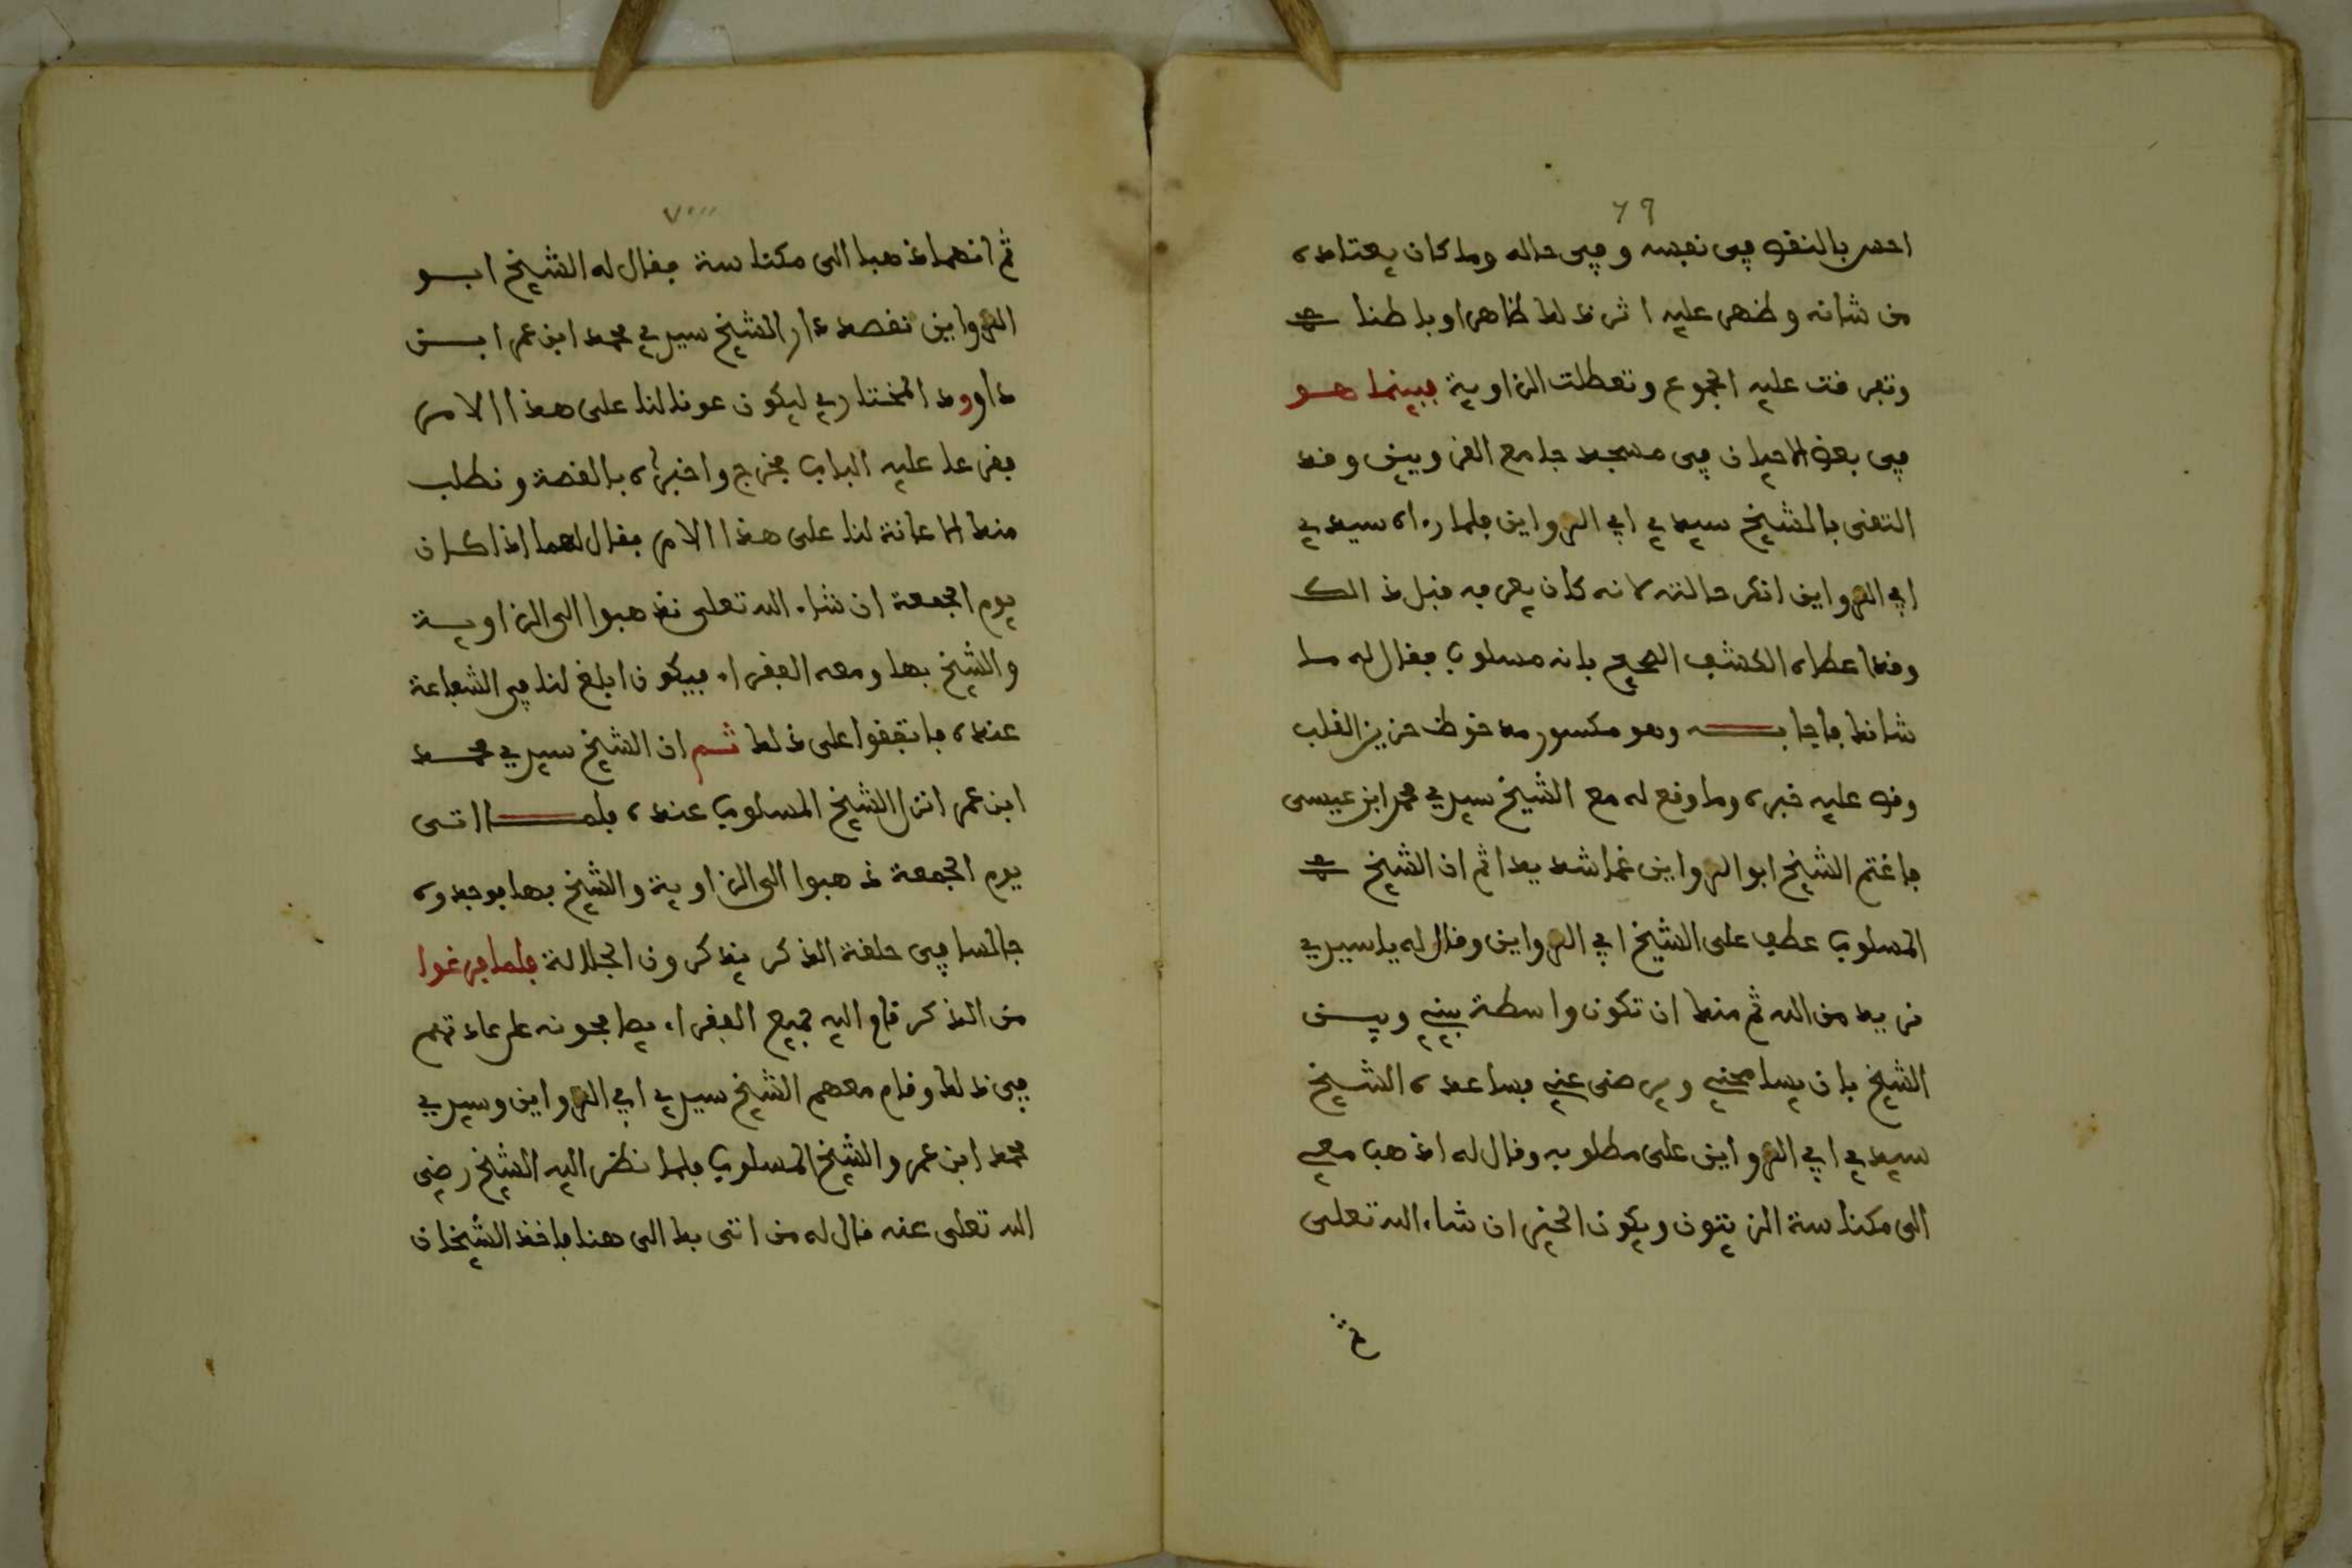 ٦٩
احس بالنقص في نفسه وفي حاله وما كان يعتاده
من شانه وظهر عليه اثر ذلك ظاهرا وباطنا
وتفرقت عليه الجموع وتعطلت الزاوية فبينما هو
في بعض الاحيان في مسجد جامع القرويين وقد
التقى بالشيخ سيدي ابي الرواين فلما رءاه سيدي
ابي الرواين انكر حالته لانه كان يعرفه قبل ذالك
وقد اعطاه الكشف الصحيح بانه مسلوب فقال له ما
شانك فاجابه وهو مكسور حزين القلب
وقص عليه خبره وما وقع له مع الشيخ سيدي محمد ابن عيسى
فاغتم الشيخ ابو الرواين غما شديدا ثم ان الشيخ
المسلوب عطف على الشيخ ابي الرواين وقال له يا سيدي
نريد من الله ثم منك ان تكون واسطة بيني وبين
الشيخ بان يسامحني ويرضى عني فساعده الشيخ
سيدي ابي الرواين على مطلوبه وقال له اذهب معي
الى مكناسة الزيتون ويكون الخير ان شاء الله تعلى
ثم
٧٠
ثم انهما ذهبا الى مكناسة فقال له الشيخ ابو
الرواين نقصد دار الشيخ سيدي محمد ابن عمر ابن
داوود المختاري ليكون عونا لنا على هذا الامر
فقرعا عليه الباب فخرج واخبراه بالقصة ونطلب
منك الاعانة لنا على هذا الامر فقال لهما اذا كان
يوم الجمعة ان شاء الله تعلى نذهبوا الى الزاوية
والشيخ بها ومعه الفقراء فيكون ابلغ لنا في الشفاعة
عنده فاتفقوا على ذلك ثم ان الشيخ سيدي محمد
ابن عمر انزل الشيخ المسلوب عنده فلما اتى
يوم الجمعة ذهبوا الى الزاوية والشيخ بها فوجدوه
جالسا في حلقة الذكر يذكرون الجلالة فلما فرغوا
من الذكر قام اليه جميع الفقراء يصافحونه على عادتهم
في ذلك وقام معهم الشيخ سيدي ابي الرواين وسيدي
محمد ابن عمر والشيخ المسلوب فلما نظر اليه الشيخ رضي
الله تعلى عنه قال له من اتى بك الى هنا فاخذ الشيخان